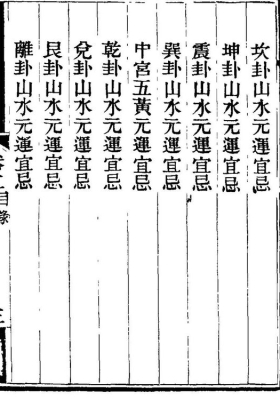 坎卦山水元運宜忌
坤卦山水元運宜忌
震卦山水元運宜忌
巽卦山水元運宜忌
中宮五黃元運宜忌
乾卦山水元運宜忌
兌卦山水元運宜忌
艮卦山水元運宜忌
離卦山水元運宜忌
目錄
三